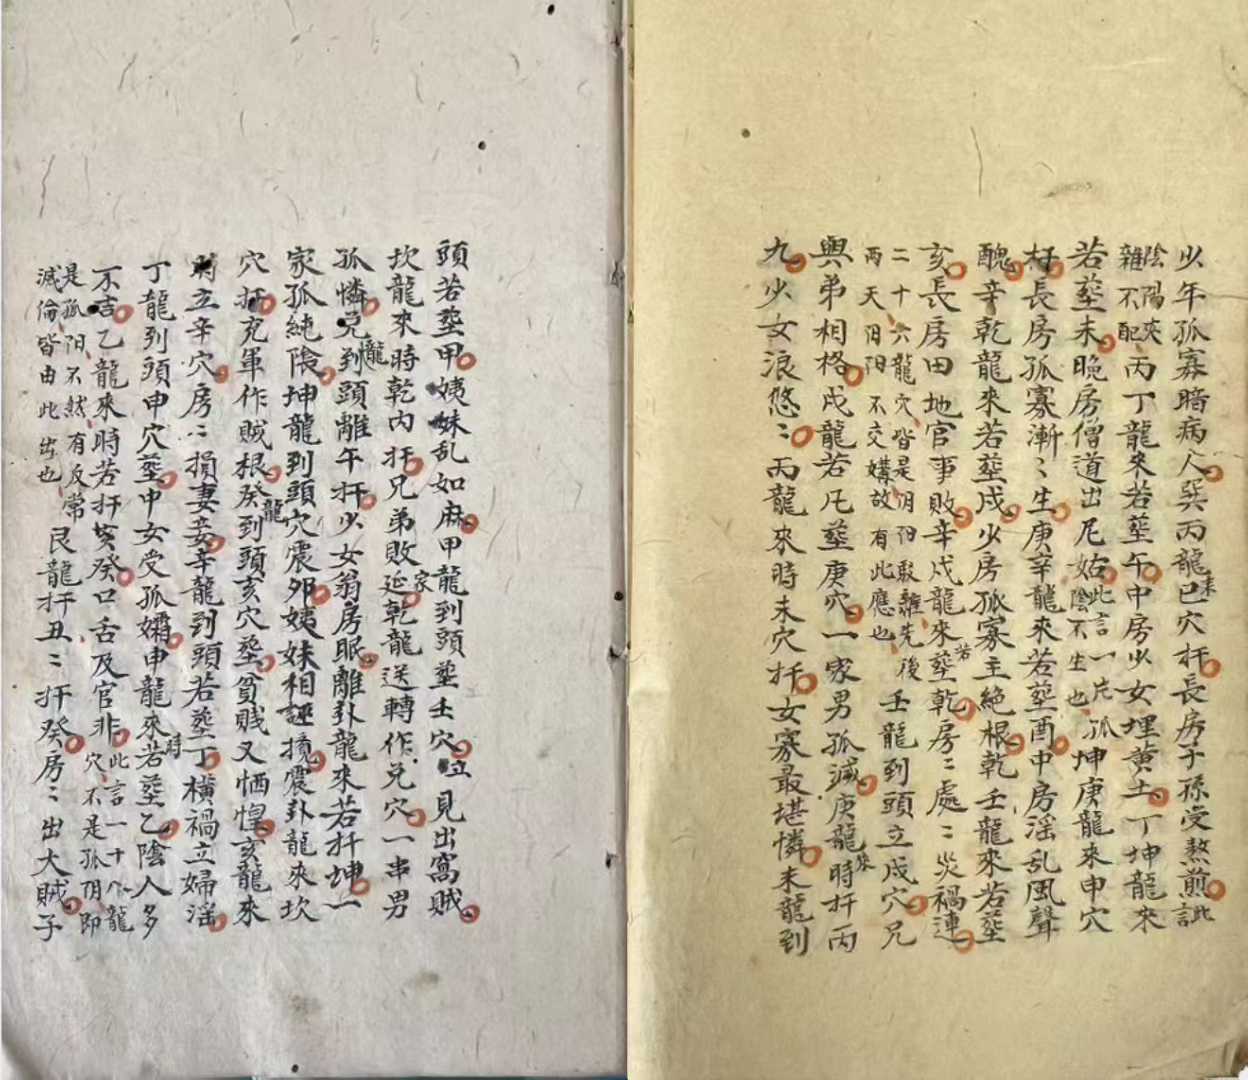 少年孤寡暗病人巽丙龍來巳穴扦長房子孫受熬煎此言
陰陽夾
雜不配丙丁龍來若塟午中房少女埋黄土丁坤龍來
若塟未晚房僧道出尼姑此言一片孤
陰不生也坤庚龍來申穴
扦長房孤寡漸〻生庚辛龍來若塟酉中房滛乱風聲
醜辛乾龍來若塟戍少房孤寡主絶根乾壬龍來若塟
亥長房田地官事敗辛戍龍來若塟乾房〻處〻災禍連
二十六龍穴皆是阴阳駁雜先後
两天阴阳不交媾故有此應也壬龍到頭立戍穴兄
與弟相格戍龍若凡塟庚穴一家男孤滅庚龍來時扦丙
九少女浪悠〻丙龍來時未穴扦女寡最堪憐未龍到
頭若塟甲姨妹乱如麻甲龍到頭塟壬穴立見出窩賊
坎龍來時乾内扦兄弟敗延家乾龍送轉作兑穴一串男
孤憐兑龍到頭離午扦少女翁房眠離卦龍來若扦坤一
家孤純陰坤龍到頭穴震夘姨妹相誣攪震卦龍來坎
穴扦充軍作賊根癸龍到頭亥穴塟貧賤又恓惶亥龍來
時立辛穴房〻損妻妾辛龍到頭若塟丁橫禍立婦滛
丁龍到頭申穴塟中女受孤孀申龍來時若塟乙陰人多
不吉乙龍來時若扦癸口舌及官非此言一十八龍
穴不是孤阴即
是孤阳不然有反常
滅倫皆由此出也艮龍扦丑〻扦癸房〻出大賊子